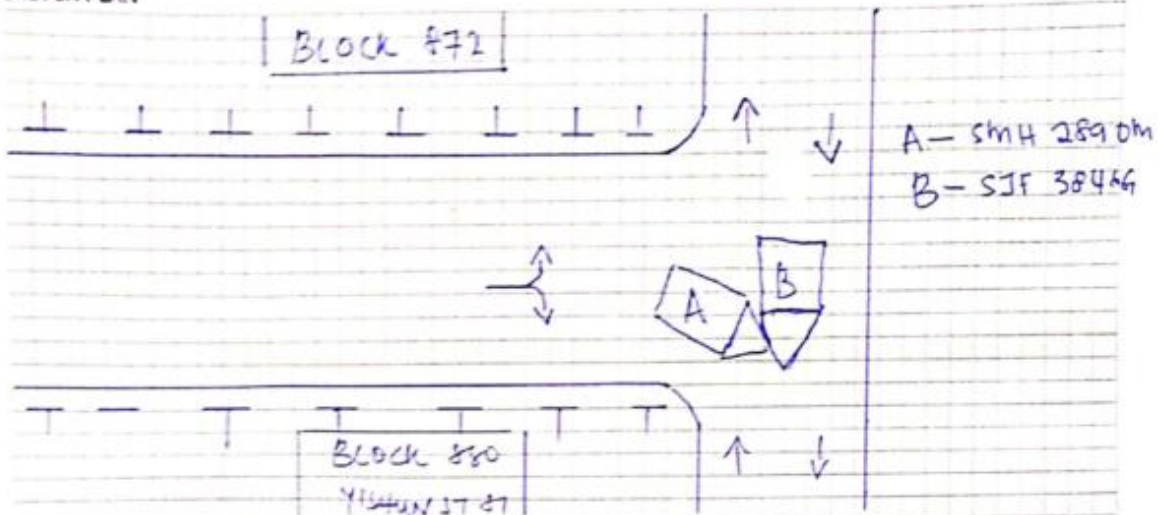 BLOCK 872
A – SMH 2890M
B – SJF
A
B
BLOCK 880
YISHUN ST 81